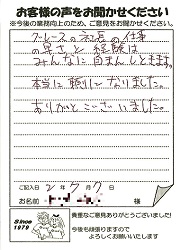 お客様の声をお聞かせください
※今後の業務向上のため、ご意見をお聞かせください
クレースの店長の仕事
の早さと経験は
みんなに自まんしときます。
本当に頼りになりました。
ありがとうございました。
ご記入日 2年7月7日
お名前 様
Since
1979
貴重なご意見ありがとうございました!
今後も頑張りますので
よろしくお願いいたします